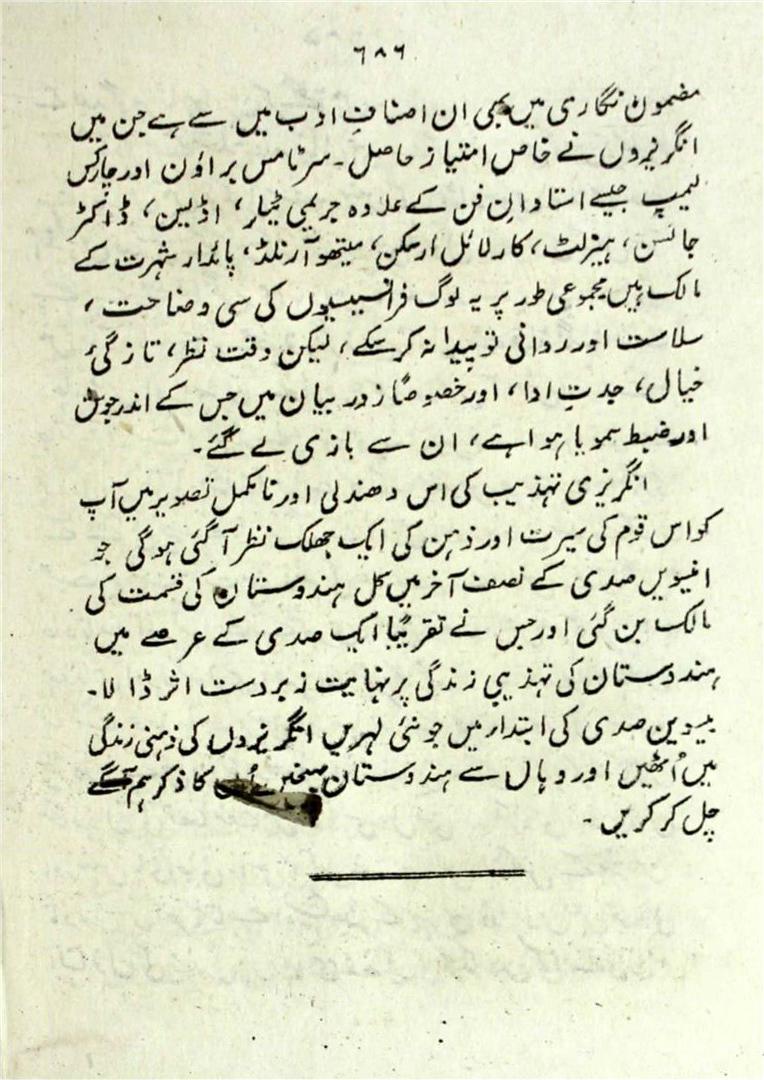 ۶۸۶
مضمون نگاری میں بھی ان اصنافِ ادب میں سے ہے جن میں
انگریزوں نے خاص امتیاز حاصل۔ سر ٹامس براؤن اور چارلس
لیمپ جیسے استادانِ فن کے علاوہ جریمی ٹیلر، اڈیسن، ڈاکٹر
جانسن، ہیزلٹ، کارلائل ارسکن، میتھو آرنلڈ، پائدار شہرت کے
مالک ہیں مجموعی طور پر یہ لوگ فرانسیسیوں کی سی وضاحت،
سلاست اور روانی تو پیدا نہ کر سکے، لیکن دقت نظر، تازگیٔ
خیال، جدتِ ادا، اور خصوصاً زور بیان میں جس کے اندر جوش
اور ضبط سمویا ہوا ہے، ان سے بازی لے گئے۔
انگریزی تہذیب کی اس دھندلی اور نامکمل تصویر میں آپ
کو اس قوم کی سیرت اور ذہن کی ایک جھلک نظر آ گئی ہوگی جو
انیسویں صدی کے نصف آخر میں کل ہندوستان کی قسمت کی
مالک بن گئی اور جس نے تقریباً ایک صدی کے عرصے میں
ہندوستان کی تہذیبی زندگی پر نہایت زبردست اثر ڈالا۔
بیسویں صدی کی ابتداء میں جو نئی لہریں انگریزوں کی ذہنی زندگی
میں اُٹھیں اور وہاں سے ہندوستان کا ذکر ہم آگے
چل کر کریں۔